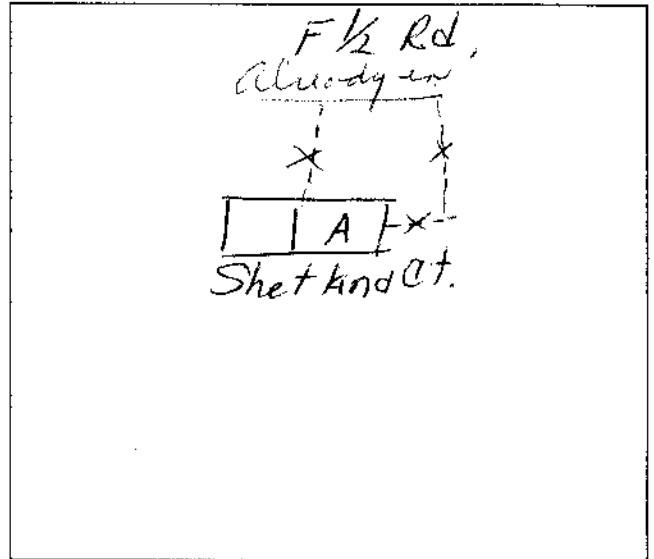 F ½ Rd.
Already in
A
Shetland Ct.